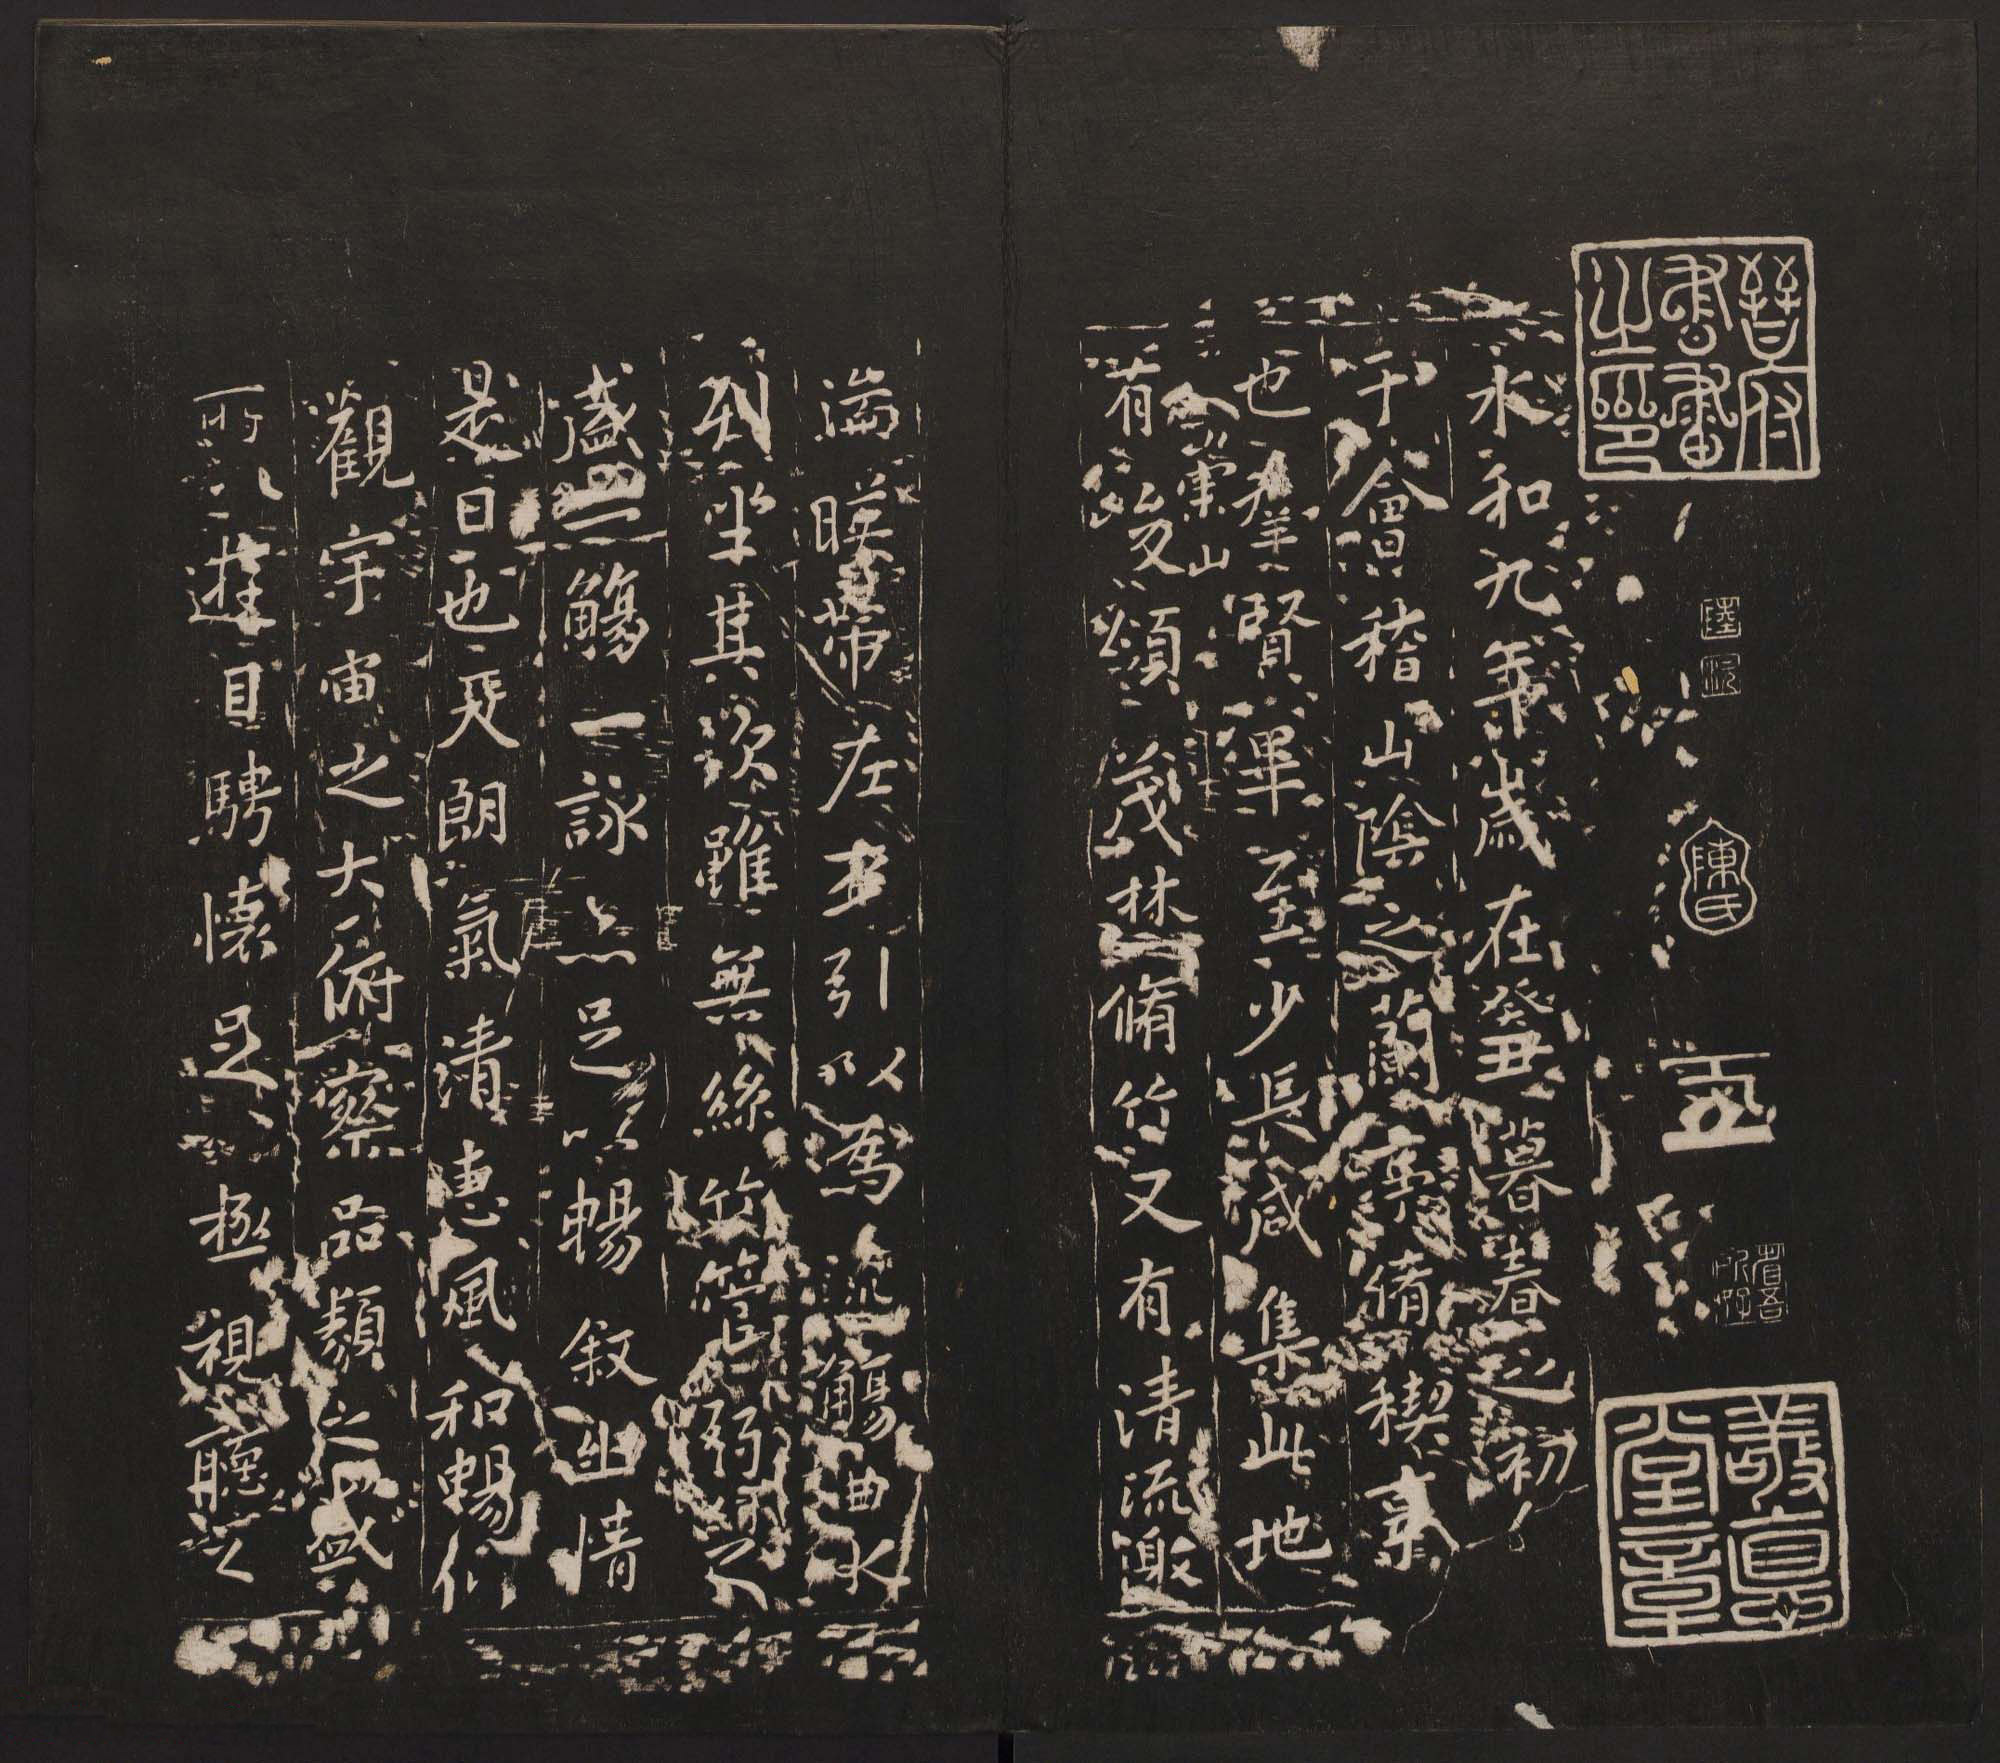 晉府
書畫
之印
陳氏
敬悳
堂章
永和九年歲在癸丑暮春之初
于會稽山陰之蘭亭脩稧事
也羣賢畢至少長咸集此地
有崇山峻領茂林脩竹又有清流激
湍暎帶左右引以為流觴曲水
列坐其次雖無絲竹管弦之
盛一觴一詠亦足以暢敘幽情
是日也天朗氣清惠風和暢仰
觀宇宙之大俯察品類之盛
所以遊目騁懷足以極視聽之